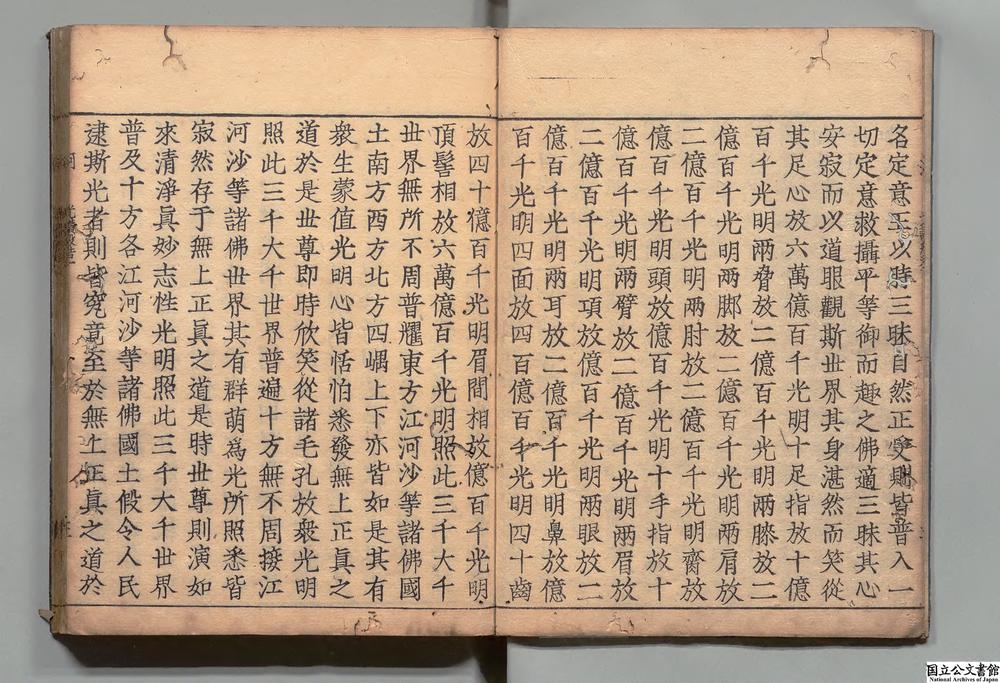 名定意王以時三昧自然正受則皆普入一
切定意救攝平等御而趣之佛適三昧其心
安寂而以道眼觀斯世界其身湛然而笑從
其足心放六萬億百千光明十足指放十億
百千光明兩脅放二億百千光明兩膝放二
億百千光明兩脚放二億百千光明兩肩放
二億百千光明兩肘放二億百千光明齎放
億百千光明頭放億百千光明十手指放十
億百千光明兩臂放二億百千光明兩眉放
二億百千光明項放億百千光明兩眼放二
億百千光明兩耳放二億百千光明鼻放億
百千光明四面放四百億百千光明四十齒
放四十億百千光明眉間相放億百千光明
頂髻相放六萬億百千光明照此三千大千
世界無所不周普耀東方江河沙等諸佛國
土南方西方北方四嵎上下亦皆如是其有
衆生蒙值光明心皆恬怕悉發無上正真之
道於是世尊即時欣笑從諸毛孔放衆光明
照此三千大千世界普遍十方無不周接江
河沙等諸佛世界其有群萌爲光所照悉皆
寂然存于無上正真之道是時世尊則演如
來清淨真妙志性光明照此三千大千世界
普及十方各江河沙等諸佛國土假令人民
逮斯光者則皆究竟至於無上正真之道於
国立公文書館
National Archives of Japan